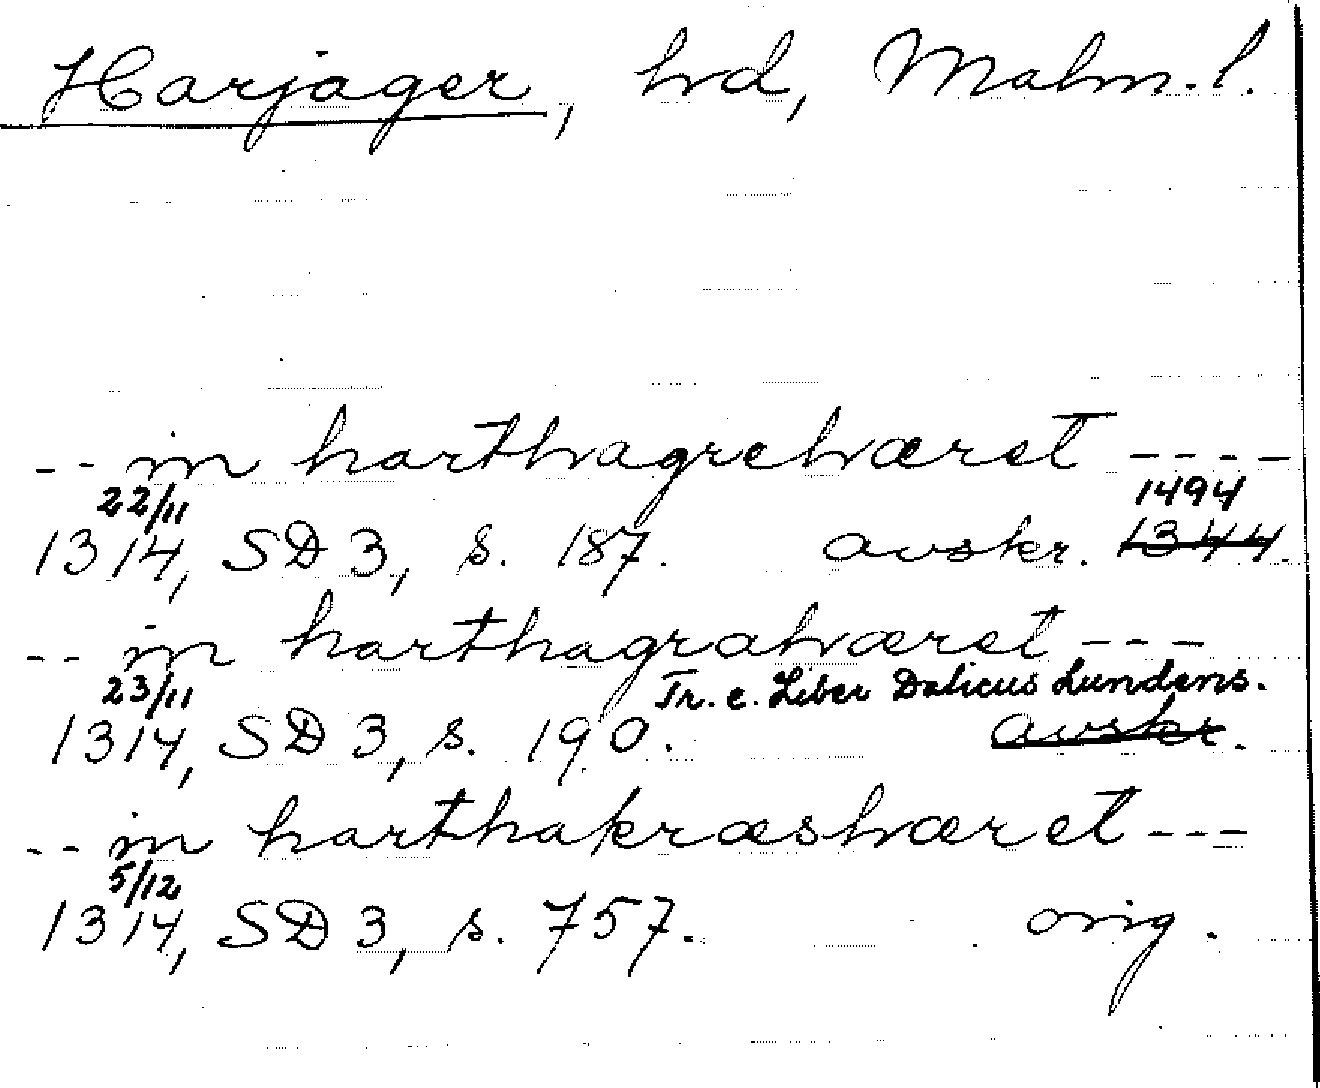 Harjager, hd, Malm. l.
-- in harthagrehæret ----
22/11 1494
1314, SD 3, s. 187. avskr. 1344.
-- in harthagrahæret ---
23/11 Tr. e. Liber Dalicus Lundens.
1314, SD 3, s. 190. avskr.
-- in harthakræshæret ---
5/12
1314, SD 3, s. 757. orig.